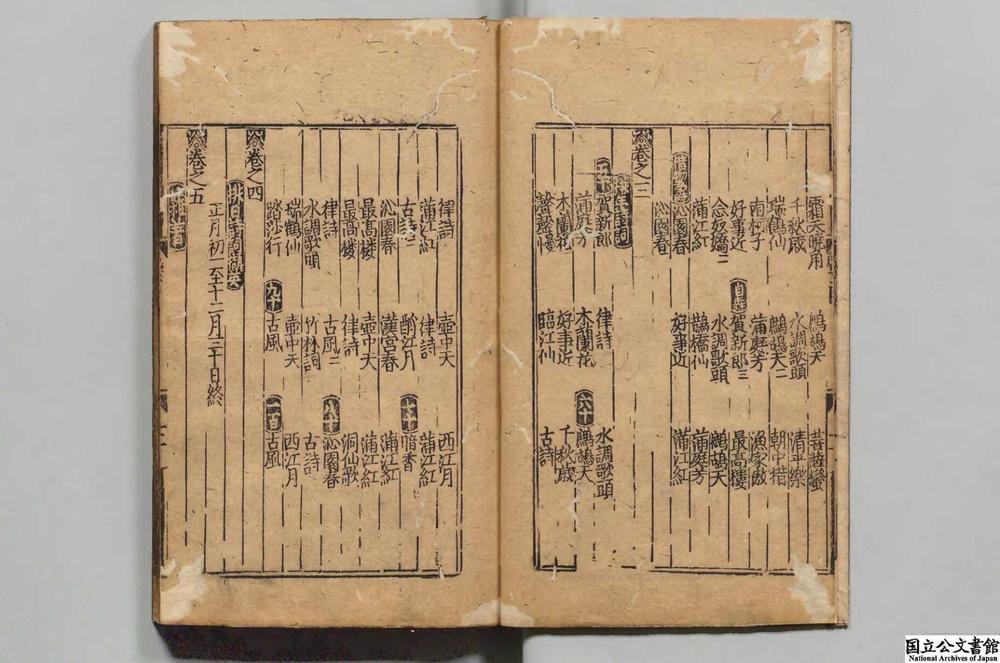 霜天曉角 鷓鴣天 菩薩蠻
千秋歲 水調歌頭 清平樂
瑞鶴仙 鷓鴣天二 朝中措
南柯子 蒲庭芳 漁家傲
好事近 自壽 賀新郎三 最高樓
念奴嬌二 水調歌頭 鷓鴣天
蒲江紅 鵲橋仙 蒲庭芳
沁園春 好事近 蒲江紅
沁園春
卷之三
慶生詩詞
五十 賀新郎 律詩 水調歌頭
蒲庭芳 木蘭花 六十 鷓鴣天
木蘭花 好事近 千秋歲
聲聲慢 臨江仙 古詩
律詩 壺中天 西江月
蒲江紅 律詩 蒲江紅
古詩二 酹江月 七十 暗香
沁園春 漢宮春 蒲江紅
最高樓 壺中天 蒲江紅
最高樓 律詩 洞仙歌
律詩 古風二 八十 沁園春
水調歌頭 竹林詞 古詩
瑞鶴仙 壺中天 西江月
踏莎行 九十 古風 一百 古風
卷之四
排日詩詞撮英
正月初一至十二月三十日終
卷之五